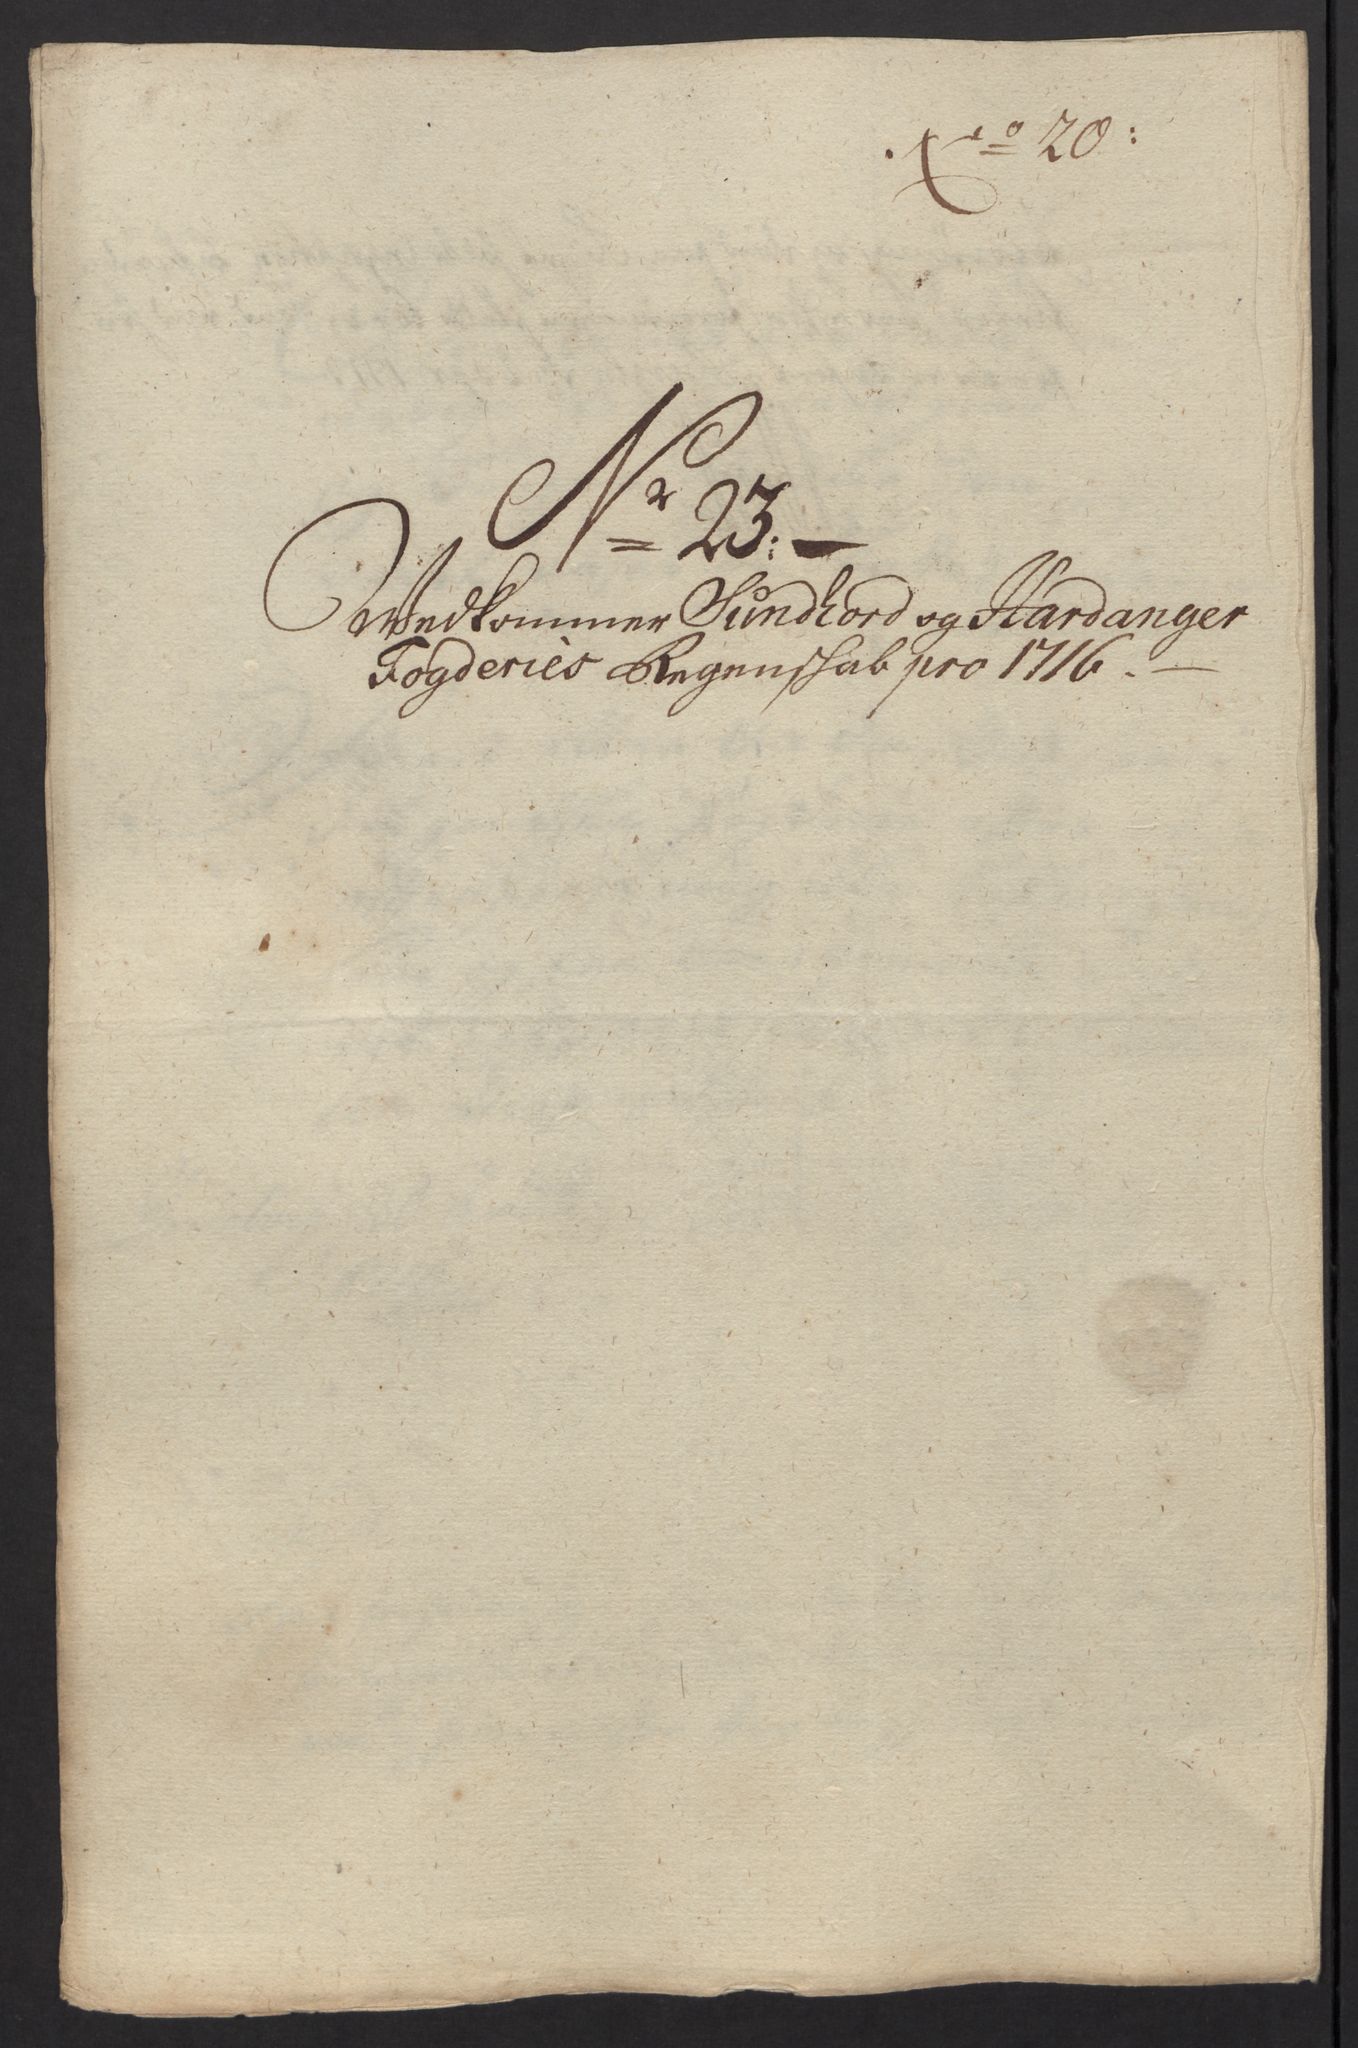 20:
Nr 23:
Vedkommer Sundhord og Hardanger
Fogderies Regenschab pro 1716.